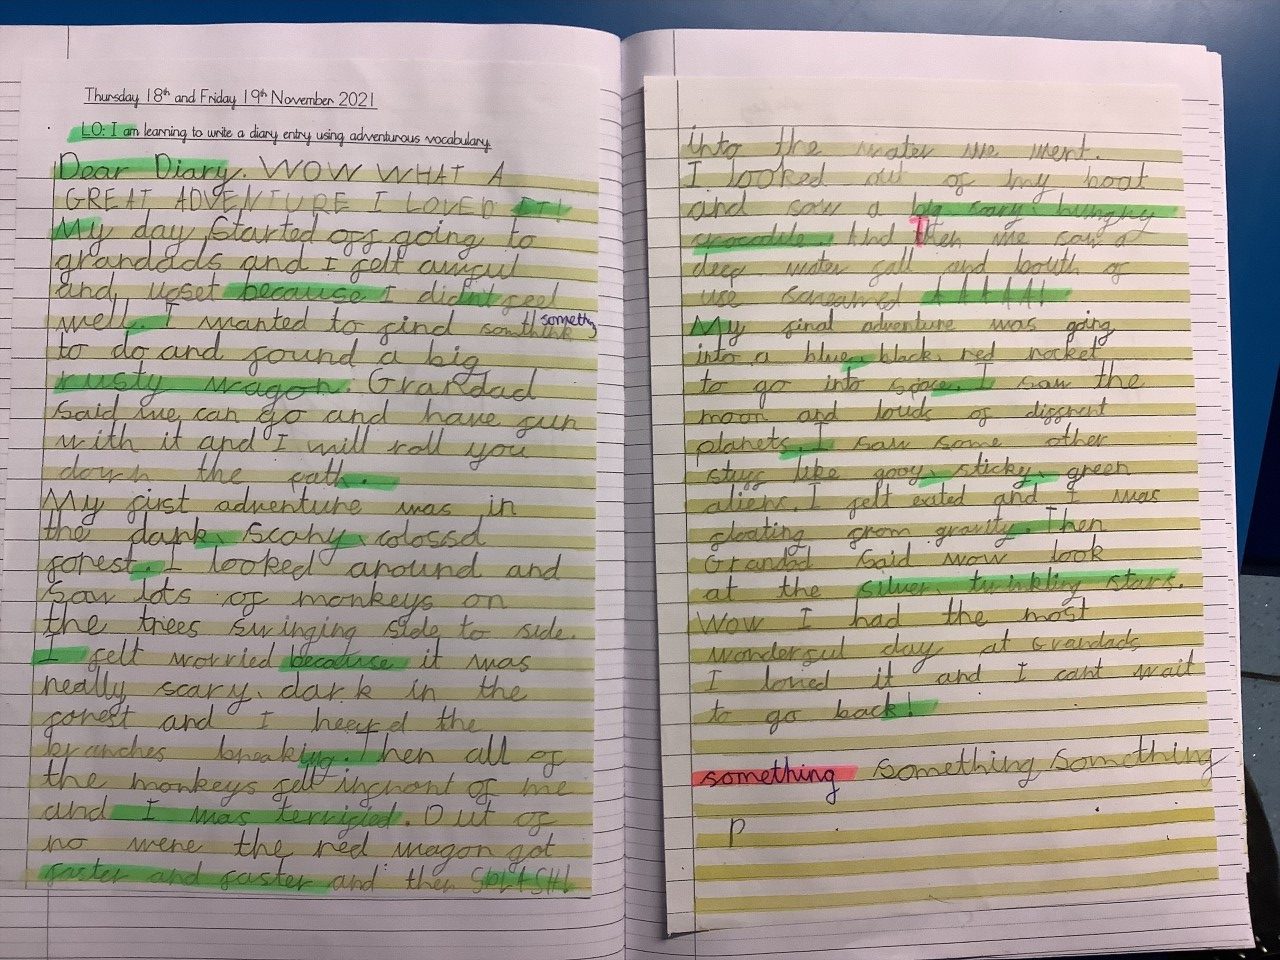 Thursday 18th and Friday 19th November 2021
LO: I am learning to write a diary entry using adventurous vocabulary.
Dear Diary. WOW WHAT A
GREAT ADVENTURE I LOVED IT!
My day started off going to
grandads and I felt awful
and upset because I didn't feel
well. I wanted to find somthink something
to do and found a big
rusty wagon. Grandad
said we can go and have fun
with it and I will roll you
down the path.
My first adventure was in
the dark, scary, colossd
forest. I looked around and
saw lots of monkeys on
the trees swinging side to side.
I felt worried because it was
really scary, dark in the
forest and I heerd the
branches breaking. Then all of
the monkeys fell infront of me
and I was terrified. Out of
no were the red wagon got
faster and faster and then SPLASH!
into the water we went.
I looked out of my boat
and saw a big scary, hungry
crocodile. And Then we saw a
deep water fall and bouth of
use screamed AAAAA!
My final adventure was going
into a blue, black, red rocket
to go into space. I saw the
moon and louds of diffrent
planets. I saw some other
stuff like gooy, sticky, green
aliens. I felt exited and I was
floating from gravity. Then
Grandad said wow look
at the silver, twinkling stars.
Wow I had the most
wonderful day at Grandads
I loved it and I cant wait
to go back!
something something something
P